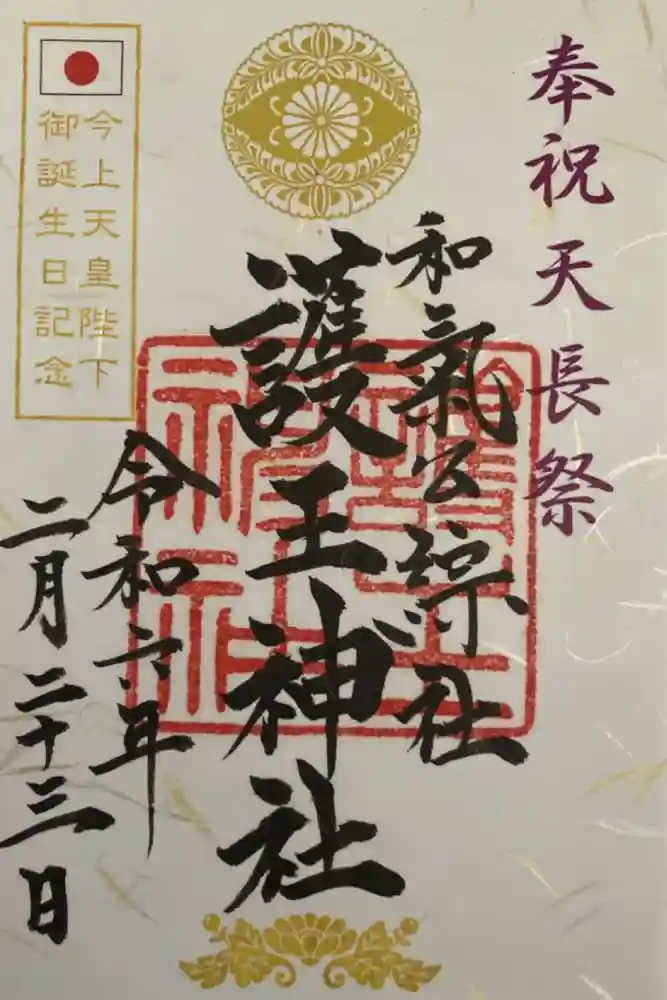 奉祝天長祭
和氣公綜社
護王神社
令和六年
二月二十三日
今上天皇陛下
御誕生日記念
護王
神社